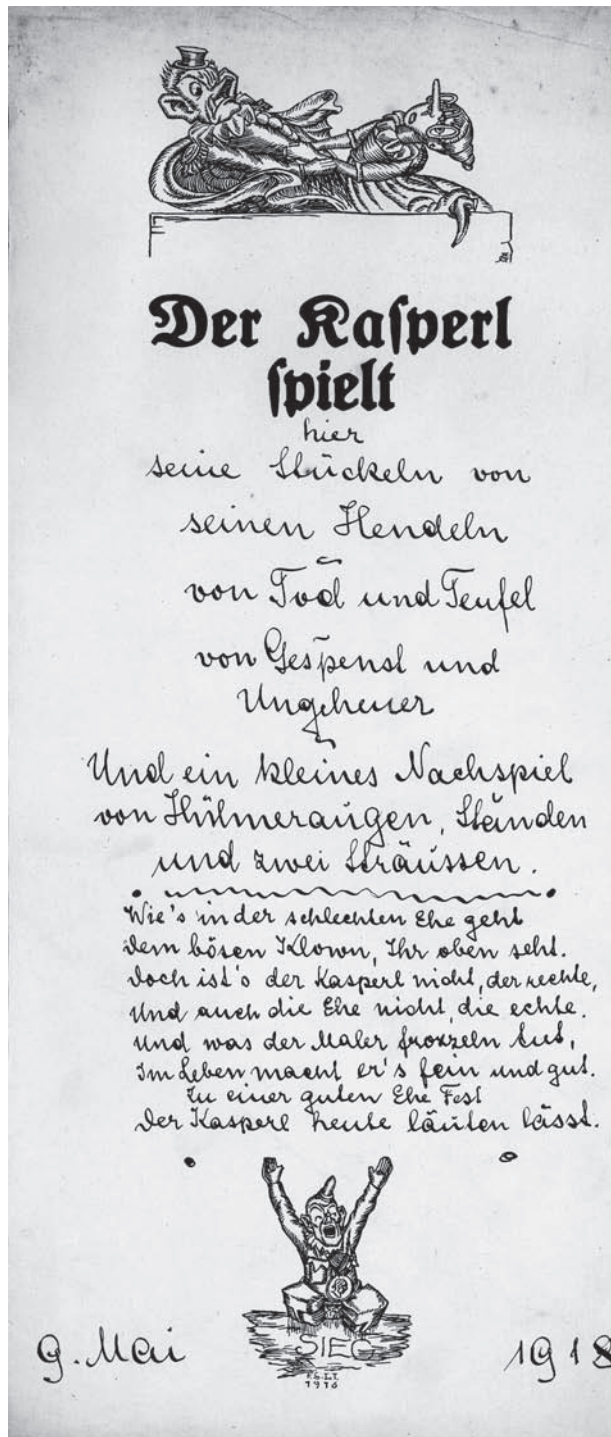 Der Kaſperl
ſpielt
hier
seine Stückeln von
seinen Hendeln
von Tod und Teufel
von Gespenst und
Ungeheuer
Und ein kleines Nachspiel
von Hühneraugen, Ständen
und zwei Sträussen.
Wie's in der schlechten Ehe geht
dem bösen Klown, Ihr oben seht.
Doch ist's der Kasperl nicht, der rechte,
Und auch die Ehe nicht, die echte.
Und was der Maler froxzeln tut,
Im Leben macht er's fein und gut.
Zu einer guten Ehe Fest
Der Kasperl heute läuten lässt.
SIEG
1916
9. Mai 1918